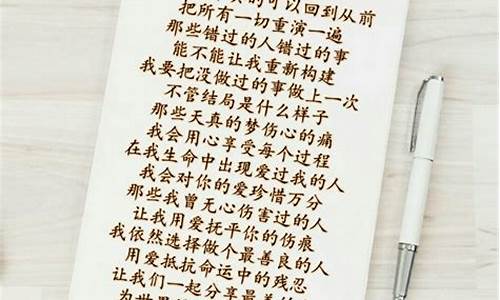 的可以回到从前
把所有一切重演一遍
那些错过的人错过的事
能不能让我重新构建
我要把没做过的事做上一次
不管结局是什么样子
那些天真的梦伤心的痛
我会用心享受每个过程
在我生命中出现爱过我的人
我会对你的爱珍惜万分
那些我曾无心伤害过的人
让我用爱抚平你的伤痕
我依然选择做个最善良的人
用爱抵抗命运中的残忍
让我们一起分享最善